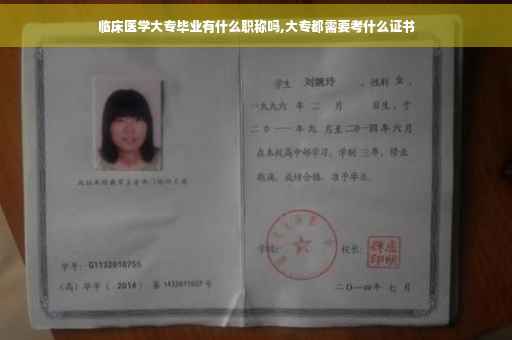 临床医学大专毕业有什么职称吗,大专都需要考什么证书
学生 刘婉玲 ，性别 女 ，
一九九六 年 二 月 日生，于
二〇一一年九 月至二〇一四年 六 月
在本校高中部学习，学制 三年，修业
期满，成绩合格，准予毕业。
学校： 校长：
二〇一四年 七 月
学号： G1132010755
（高）毕字（ 2014 ）第 1432011607 号